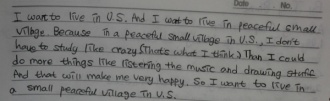 Date No.
I want to live in U.S. And I want to live in peaceful small
village. Because in a peaceful small village in U.S., I don't
have to study like crazy (That's what I think) Than I could
do more things like listening the music and drawing stuffs
And that will make me very happy. So I want to live in
a small peaceful village in U.S.